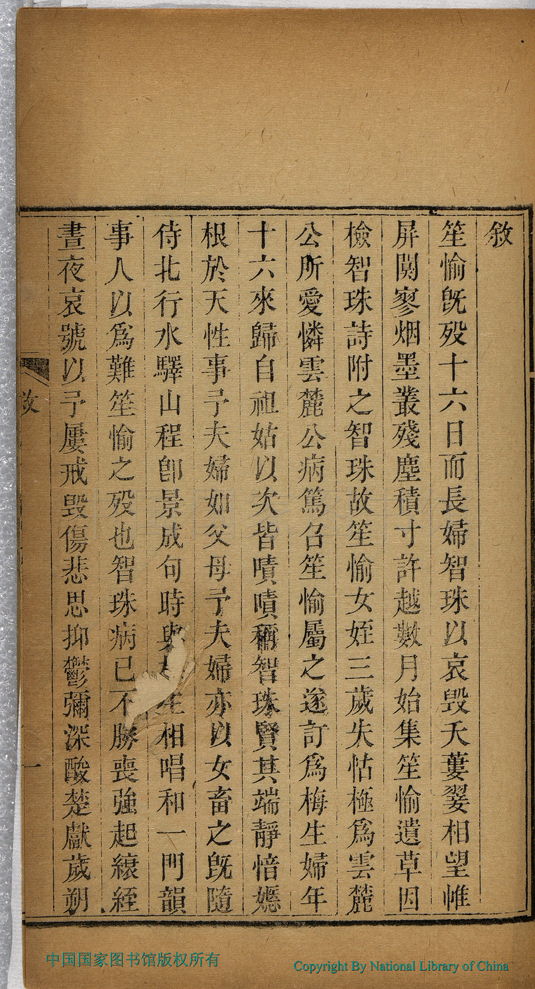 敘
笙愉旣歿十六日而長婦智珠以哀毁夭蔞翣相望帷
屏闃寥烟墨叢殘塵積寸許越數月始集笙愉遺草因
檢智珠詩附之智珠故笙愉女姪三歲失怙極爲雲麓
公所愛憐雲麓公病篤召笙愉屬之遂訂爲梅生婦年
十六來歸自祖姑以次皆嘖嘖稱智珠賢其端靜愔嫕
根於天性事予夫婦如父母予夫婦亦以女畜之旣隨
侍北行水驛山程卽景成句時與 生相唱和一門韻
事人以爲難笙愉之歿也智珠病已不勝喪強起縗絰
晝夜哀號以予屢戒毁傷悲思抑鬱彌深酸楚獻歲朔
敘
一
中国国家图书馆版权所有
Copyright By National Library of China